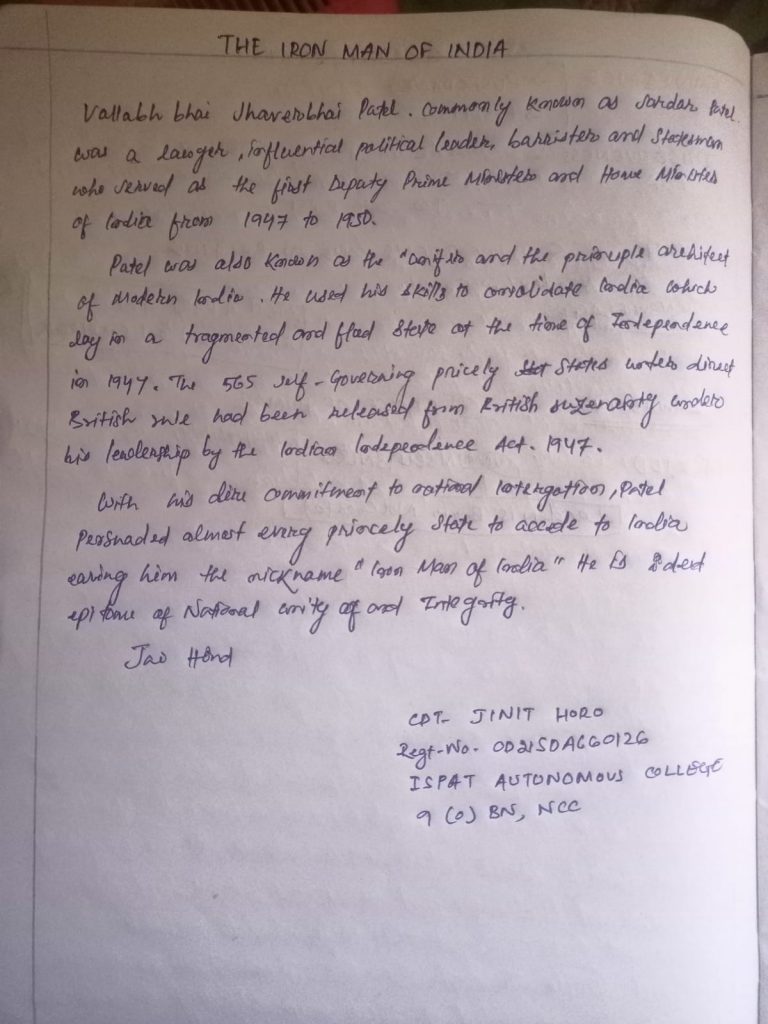 THE IRON MAN OF INDIA
Vallabh bhai Jhaverbhai Patel. Commonly known as Sardar Patel
was a lawyer, influential political leader, barrister and Statesman
who served as the first Deputy Prime Minister and Home Minister
of India from 1947 to 1950.
Patel was also known as the "Unifier and the principle architect
of Modern India. He used his skills to consolidate India which
lay in a fragmented and flad State at the time of Independence
in 1947. The 565 self-Governing pricely States under direct
British rule had been released from British suzerainty under
his leadership by the Indian Independence Act. 1947.
With his dire commitment to national intergation, Patel
Persuaded almost every princely State to accede to India
earing him the nickname "Iron Man of India" He Is
epitome of National unity of and Integrity.
Jai Hind
CDT- JINIT HORO
Regt-No- OD21SDA660126
ISPAT AUTONOMOUS COLLEGE
9 (O) BN, NCC